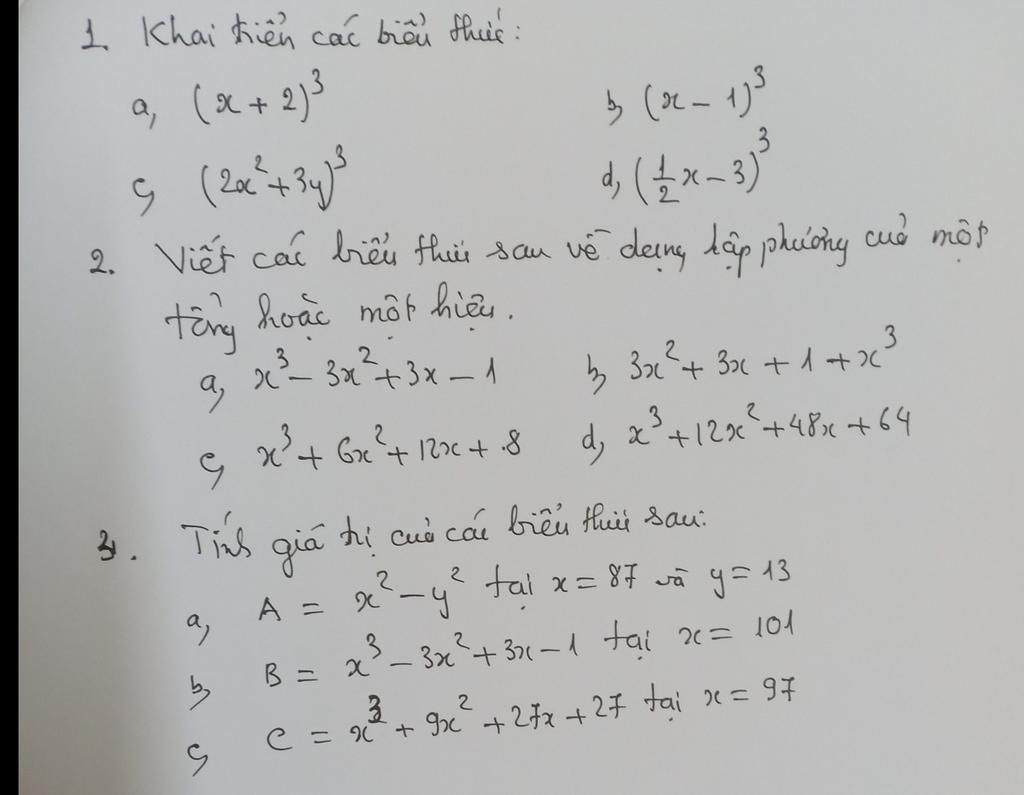 1. Khai triển các biểu thức:
a, (x + 2)³ b, (x - 1)³
c, (2x² + 3y)³ d, (1/2 x - 3)³
2. Viết các biểu thức sau về dạng lập phương của một
tổng hoặc một hiệu.
a, x³ - 3x² + 3x - 1 b, 3x² + 3x + 1 + x³
c, x³ + 6x² + 12x + 8 d, x³ + 12x² + 48x + 64
3. Tính giá trị của các biểu thức sau:
a, A = x² - y² tại x = 87 và y = 13
b, B = x³ - 3x² + 3x - 1 tại x = 101
c, C = x³ + 9x² + 27x + 27 tại x = 97